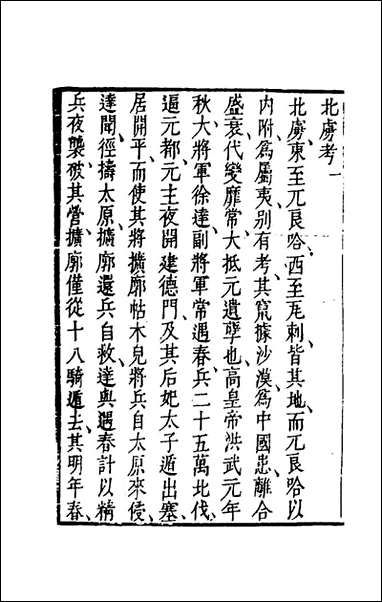 北虜考一
北虜東至兀良哈西至瓦剌皆其地而兀良哈以
内附爲屬夷别有考其竄據沙漠爲中國患離合
盛衰代變靡常大抵元遺孽也高皇帝洪武元年
秋大將軍徐達副將軍常遇春兵二十五萬北伐
逼元都元主夜開建德門及其后妃太子遁出塞
居開平而使其將擴廓帖木兒將兵自太原來侵
達聞徑擣太原擴廓還兵自救達與遇春計以精
兵夜襲破其營擴廓僅從十八騎遁去其明年春